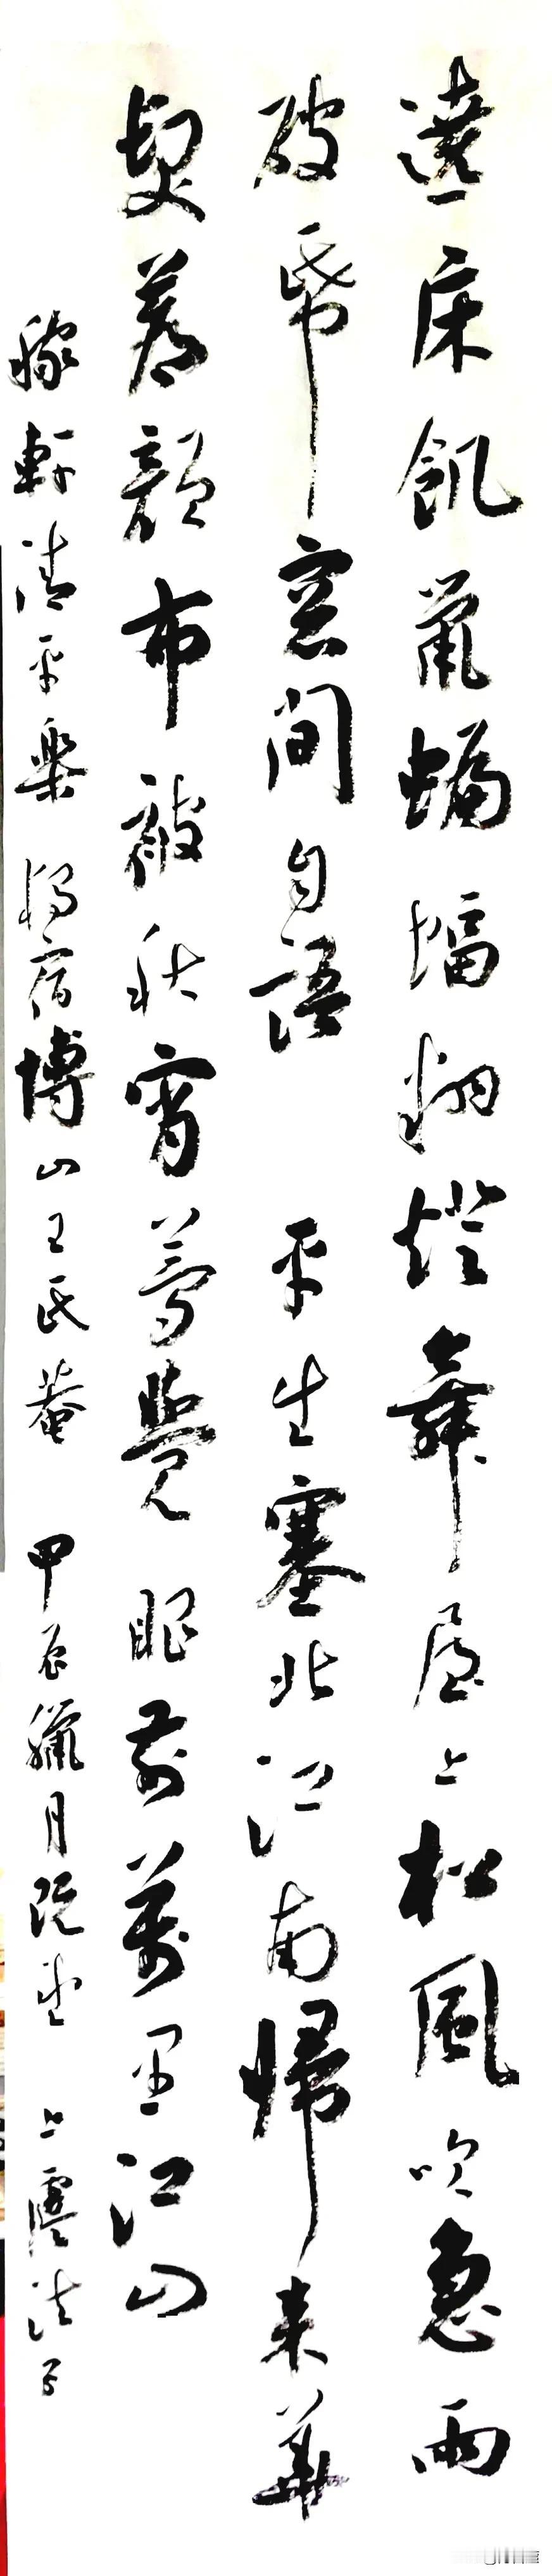 遶床飢鼠蝙蝠翻燈舞屋上松風吹急雨
破帋窓間自語 平生塞北江南歸來華
髮蒼顔布被秋宵夢覺 眼前萬里江山
稼軒清平樂 獨宿博山王氏菴 甲辰臘月 上虞